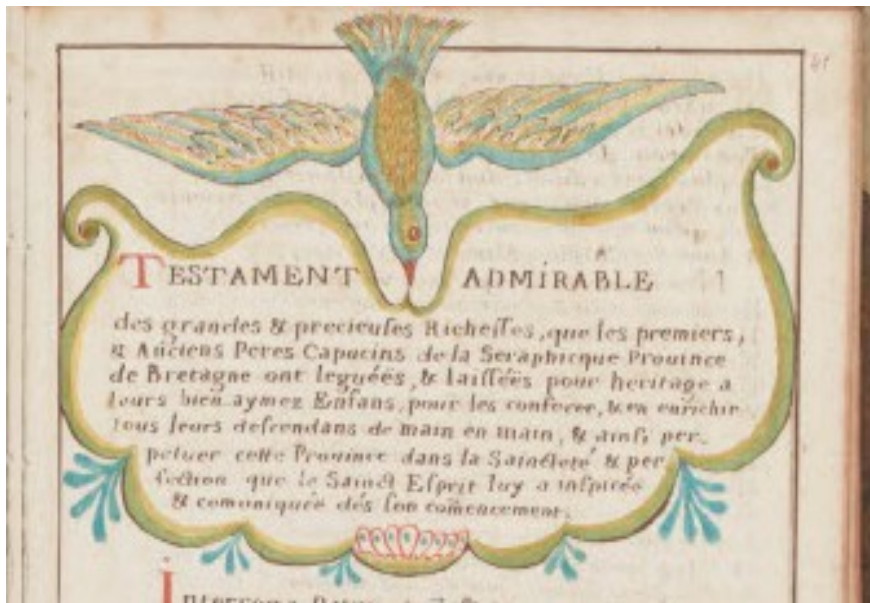 TESTAMENT ADMIRABLE
des grandes & precieuses Richesses, que les premiers,
& Anciens Peres Capucins de la Seraphicque Prouince
de Bretagne ont leguéés, & laisséés pour heritage a
leurs bien aymez Enfans, pour les conserer, & en enrichir
tous leurs descendans de main en main, & ainsi per-
petuer cette Prouince dans la Saincteté & per
fection que le Sainct Esprit luy a inspirée
& comuniquée dés son comencement.